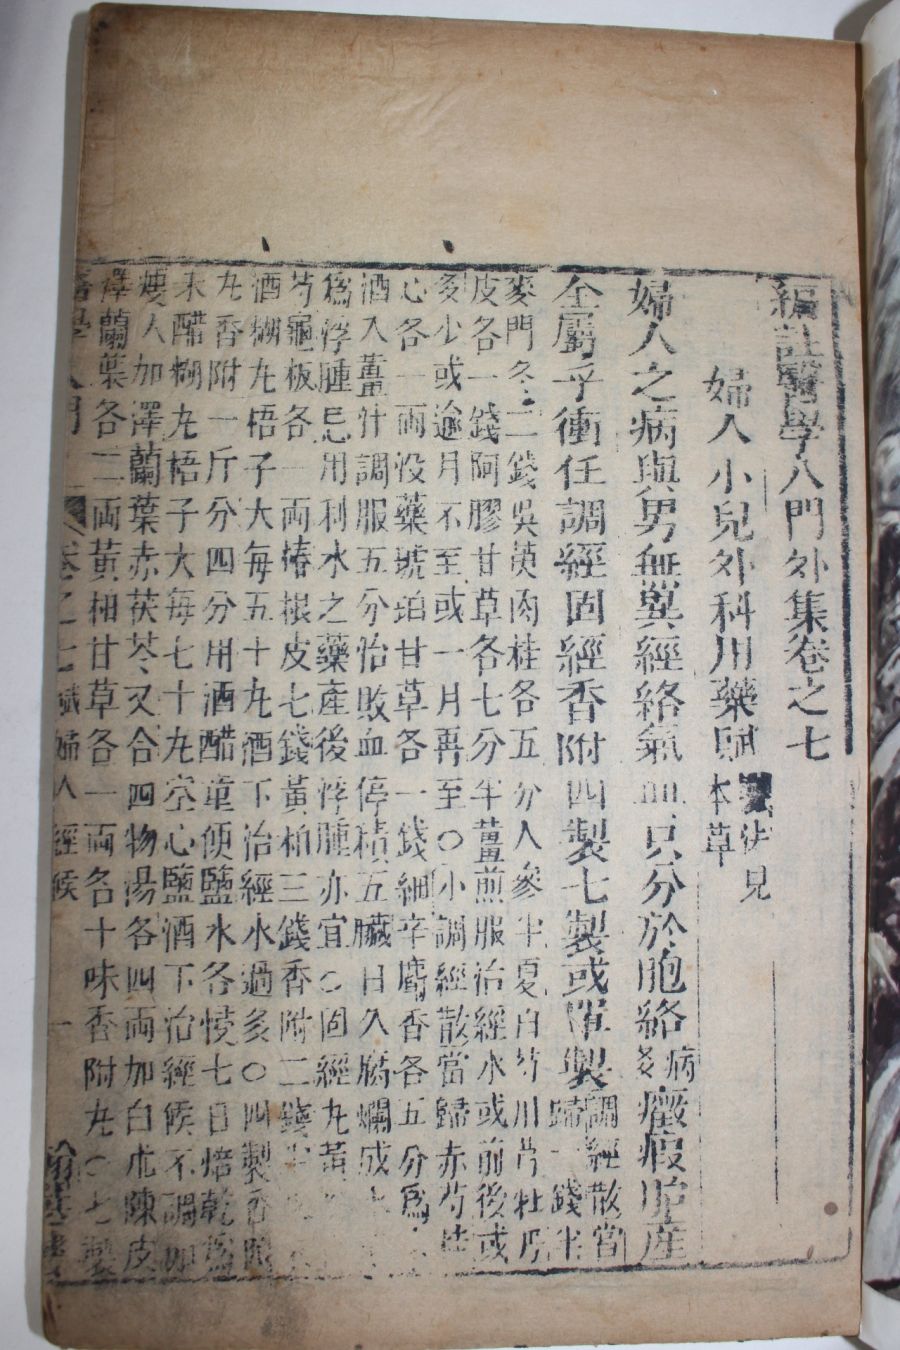 編註醫學八門外集卷之七
婦人小兒外科用藥賦
見
本草
婦人之病與男無異經絡氣血只分於胞絡
病
多
癥瘕胎產
全屬乎衝任調經固經香附四製七製或單製
調經散當
歸一錢半
麥門冬二錢吳萸肉桂各五分人參半夏白芍川芎牡丹
皮各一錢阿膠甘草各七分半薑煎服治經水或前後或
多少或逾月不至或一月再至○小調經散當歸赤芍桂
心各一兩没藥琥珀甘草各一錢細辛麝香各五分爲
酒入薑汁調服五分怡敗血停積五臟日久腐爛成
爲浮腫忌用利水之藥產後浮腫亦宜○固經丸黃
芍龜板各一兩椿根皮七錢黃柏三錢香附二錢半
酒糊丸梧子大每五十丸酒下治經水過多○四製香附
丸香附一斤分四分用酒醋童便鹽水各浸七日焙乾爲
末醋糊丸梧子大每七十丸空心鹽酒下治經候不調
人加澤蘭葉赤茯苓又合四物湯各四兩加白朮陳皮
澤蘭葉各二兩黃柏甘草各一兩名十味香附丸○七製
醫學八門 卷之七 賦 婦人經候 一